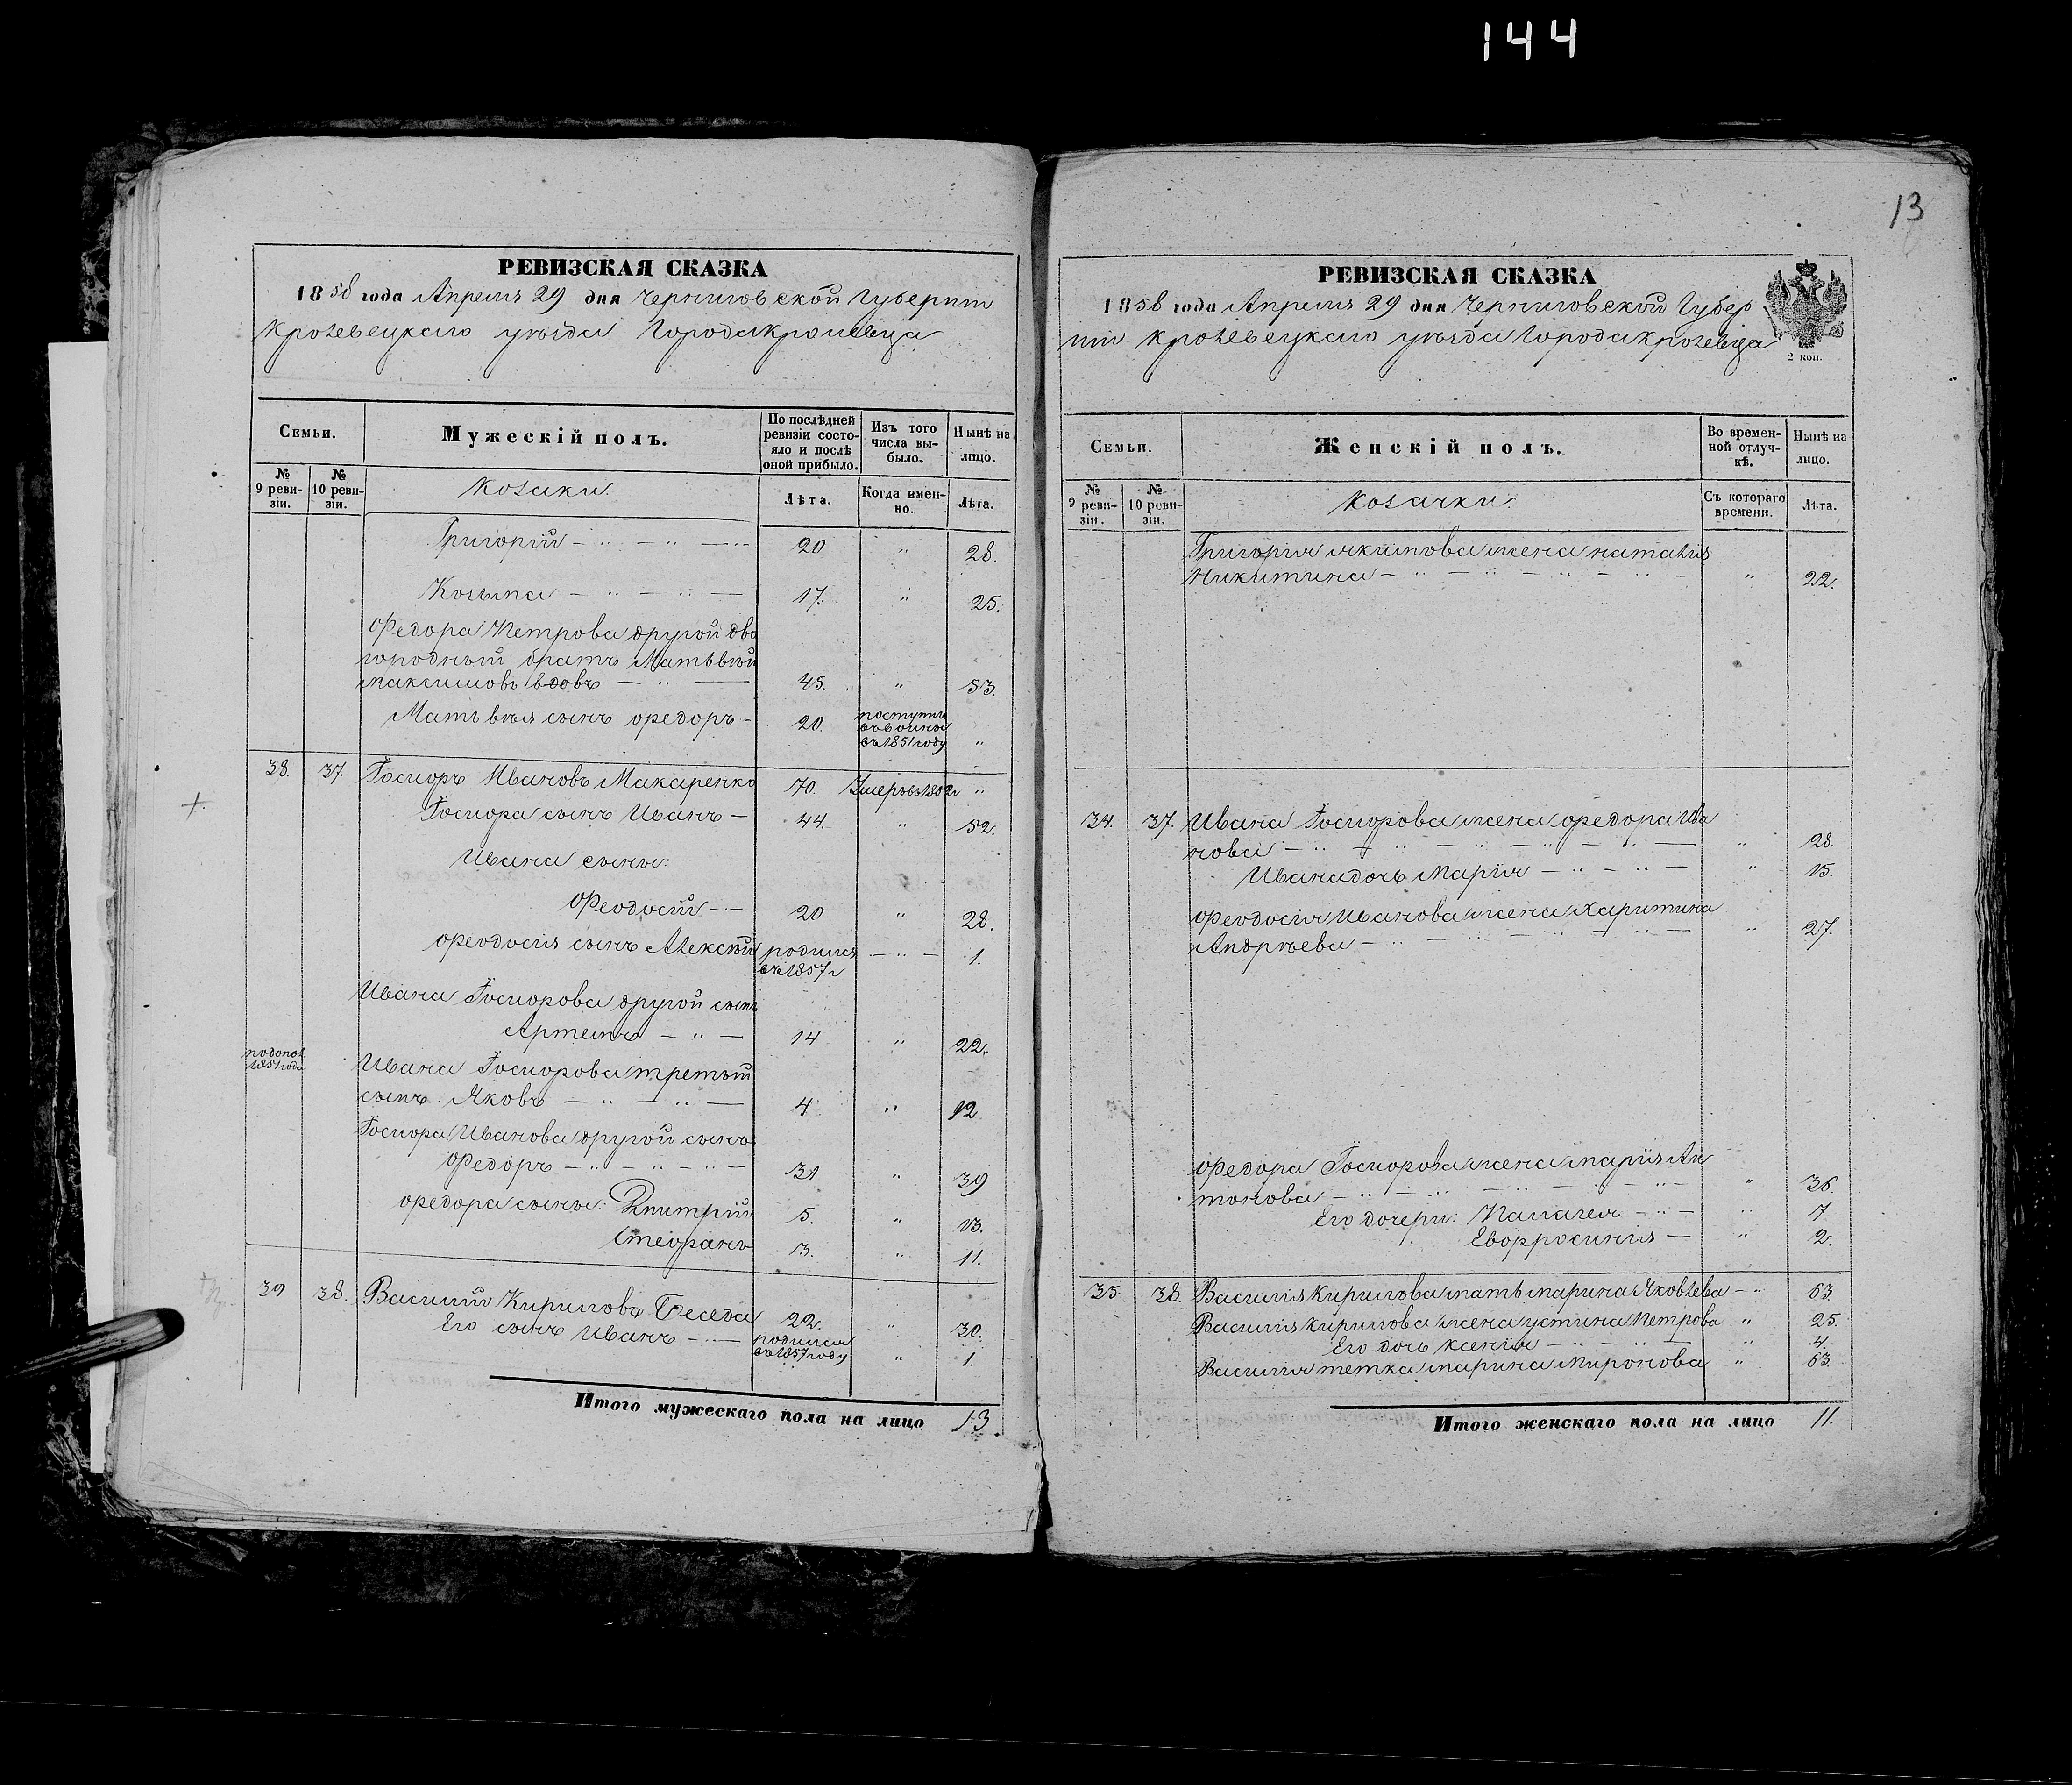 144
13
РЕВИЗСКАЯ СКАЗКА
1858 года Апреля 29 дня Черниговской Губернiи
Кролевецкаго уѣзда Города Кролевца
Семьи.
Мужескiй полъ.
По послѣдней ревизiи состо-
яло и послѣ
оной прибыло.
Изъ того
числа вы-
было.
Нынѣ на
лицо.
№
9 реви-
зiи.
№
10 реви-
зiи.
Козаки.
Лѣта.
Когда имен-
но.
Лѣта.
Григорiй — " — " — 20 " 28.
Козьма — " — " — 17. " 25.
Федора Петрова другой дво
городный братъ Матвѣй
Максимовъ вдовъ — " — 45. " 53.
Матвѣя сынъ Федоръ — 20. поступилъ
въ 1851 году "
38. 37. Госиоръ Ивановъ Макаренко 70. Умеръ "
Госиора сынъ Иванъ — 44. " 52.
Ивана сыны:
Феодосiй — 20 " 28.
Феодосiя сынъ Алексѣй родился — " — 1.
въ 1857 г
Ивана Госиорова другой сынъ
Артемъ — " — 14 " 22.
1851 года
Ивана Госиорова третiй
сынъ Яковъ — " — " — 4 " 12
Госиора Иванова другой сынъ
Федоръ — " — " — " — 31 " 39
Федора сыны: Дмитрiй 5. " 13.
Стефанъ 3. " 11.
39 38. Василiй Кириловъ Беседа 22. " 30.
Его сынъ Иванъ — родился
въ 1857 году " 1.
Итого мужескаго пола на лицо 13.
РЕВИЗСКАЯ СКАЗКА
1858 года Апреля 29 дня Черниговской Губер
нiи Кролевецкаго уѣзда Города Кролевца
2 коп.
Семьи.
Женскiй полъ.
Во времен-
ной отлуч-
кѣ.
Нынѣ на
лицо.
№
9 реви-
зiи.
№
10 реви-
зiи.
Козачки.
Съ котораго
времени.
Лѣта.
Григорiя Якимова жена Наталiя
Никитина — " — " — " — " — " 22.
34. 37. Ивана Госиорова жена Федора Ива
нова — " — " — " — " — " 28.
Ивана дочь Марiя — " — " — " 15.
Феодосiя Иванова жена Харитина
Андрѣева — " — " — " — " 27.
Федора Госиорова жена Марiя Ан
тонова — " — " — " — " — " 36.
Его дочери: Палагея — " — " 7
Евфросинiя — " 2.
35. 38. Василiя Кирилова мать Марина Яковлева — " 63.
Василiя Кирилова жена Устина Петрова " 25.
Его дочь Ксенiя — " — " — " 4.
Василiя тетка Марина Миронова " 63.
Итого женскаго пола на лицо 11.